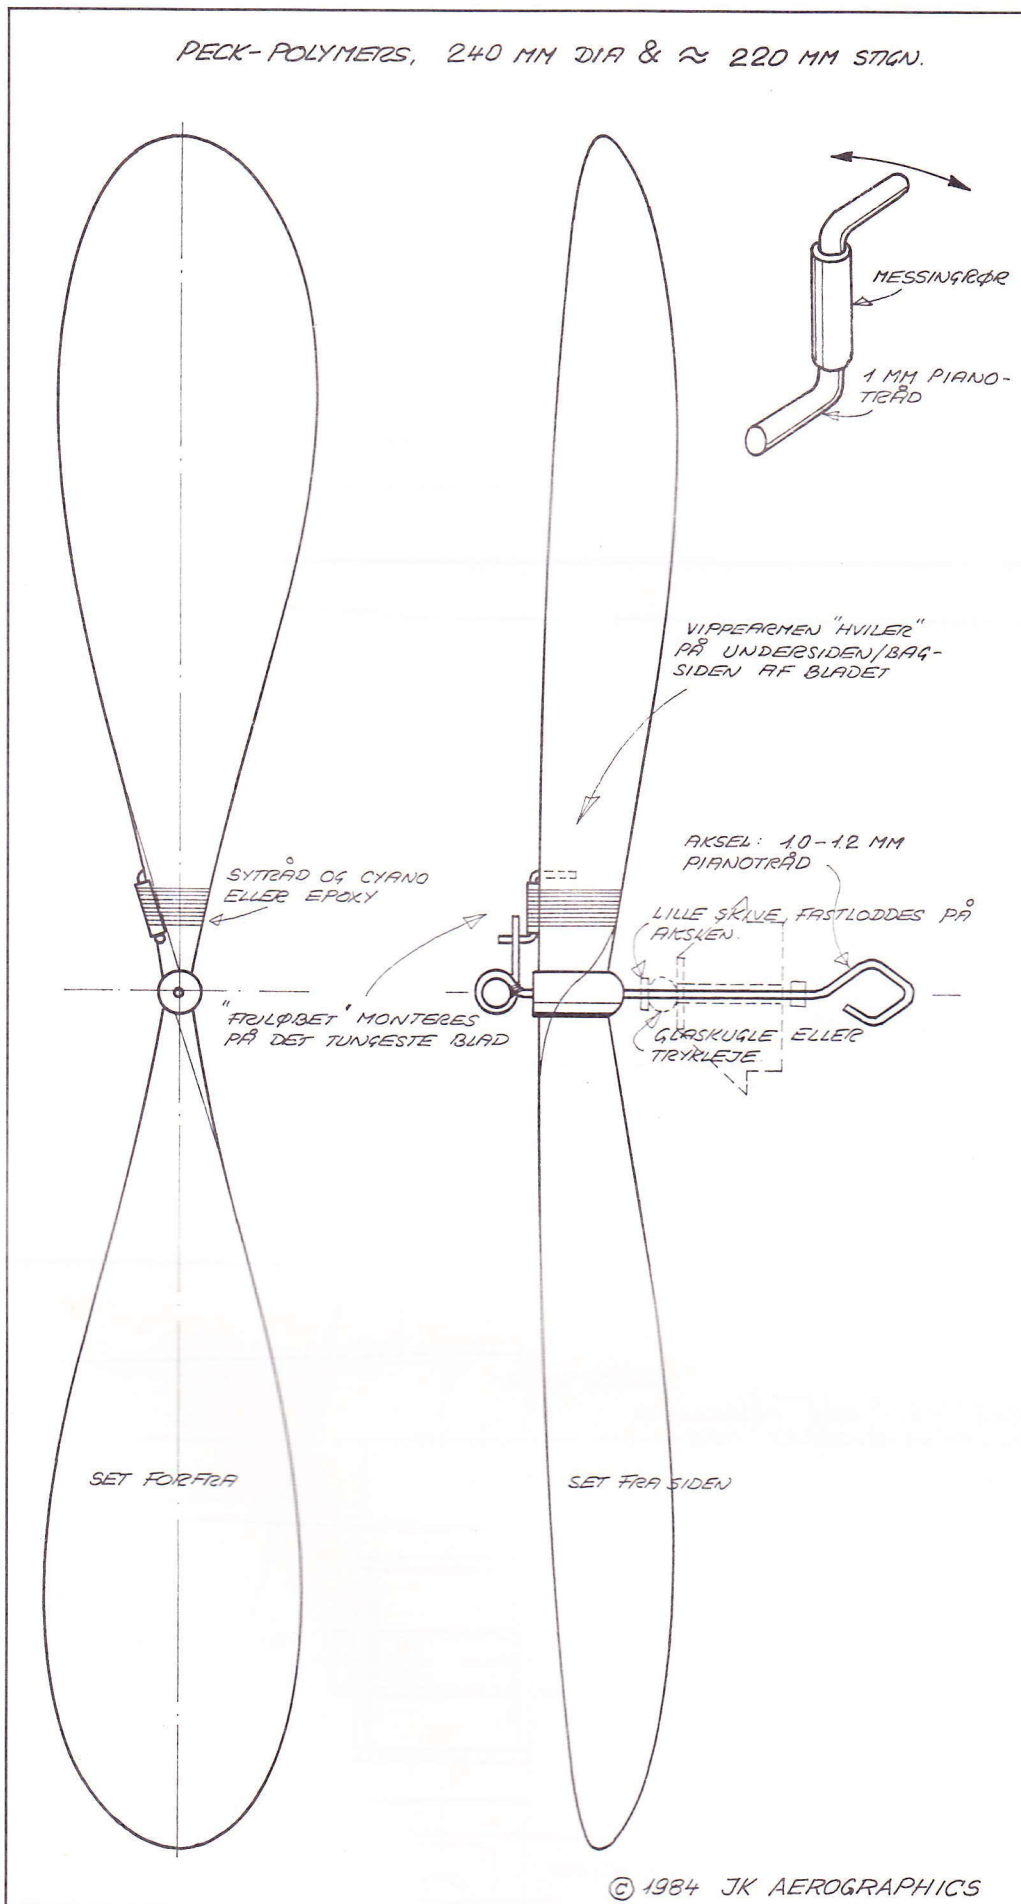 PECK-POLYMERS, 240 MM DIA & ≈ 220 MM STIGN.
MESSINGRØR
1 MM PIANO-
TRÅD
VIPPEARMEN "HVILER"
PÅ UNDERSIDEN/BAG-
SIDEN AF BLADET
AKSEL: 1.0-1.2 MM
PIANOTRÅD
SYTRÅD OG CYANO
ELLER EPOXY
LILLE SKIVE, FASTLODDES PÅ
AKSLEN.
"FRILØBET" MONTERES
PÅ DET TUNGESTE BLAD
GLASKUGLE ELLER
TRYKLEJE.
SET FORFRA
SET FRA SIDEN
© 1984 JK AEROGRAPHICS